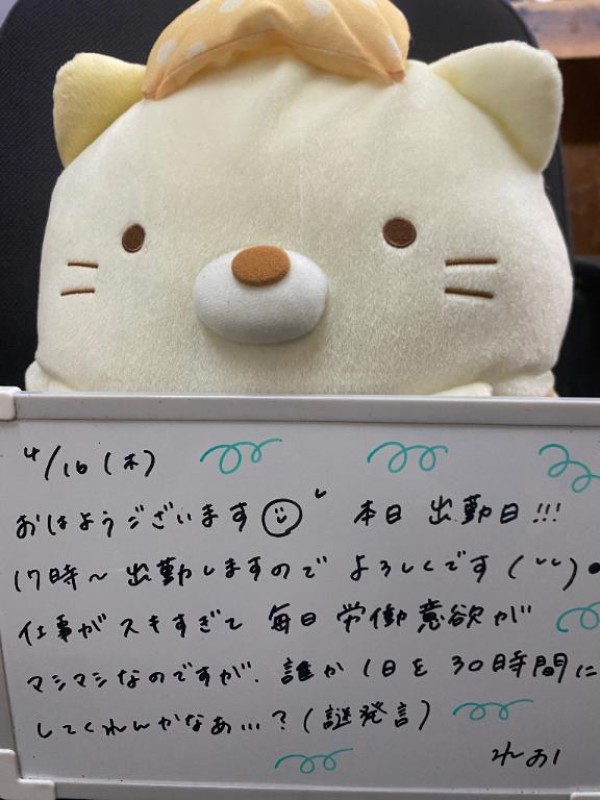 4/16(木)
おはようございます 本日 出勤日!!!
17時〜出勤しますので よろしくです
仕事がスキすぎて 毎日 労働意欲が
マシマシなのですが、誰か1日を30時間に
してくれんかなぁ…?(謎発言)